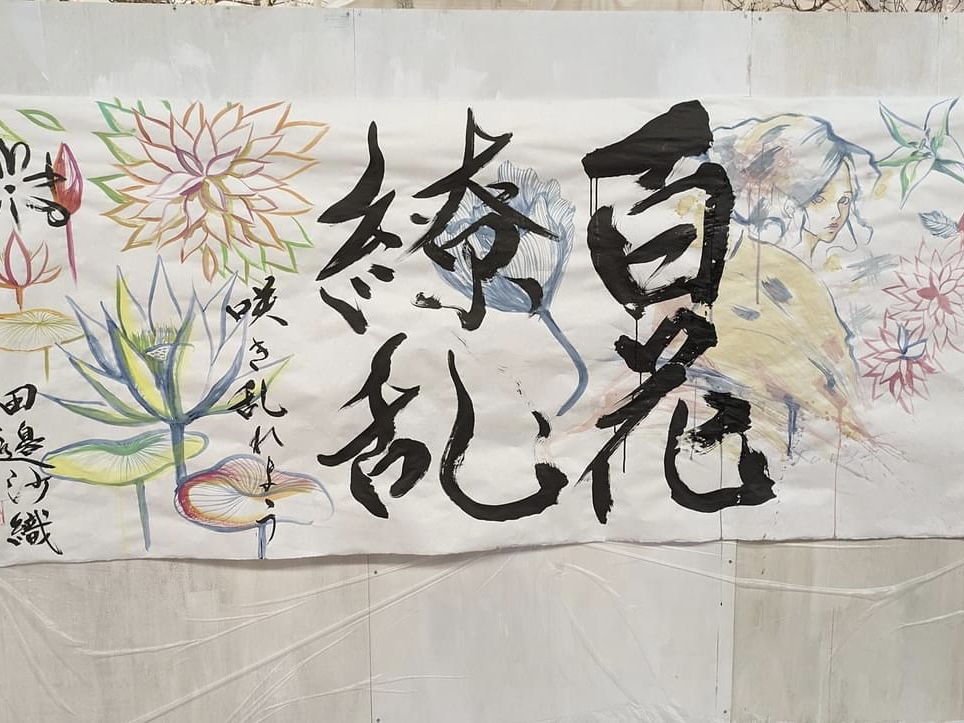 百花
繚乱
咲き乱れよう
田邉沙織